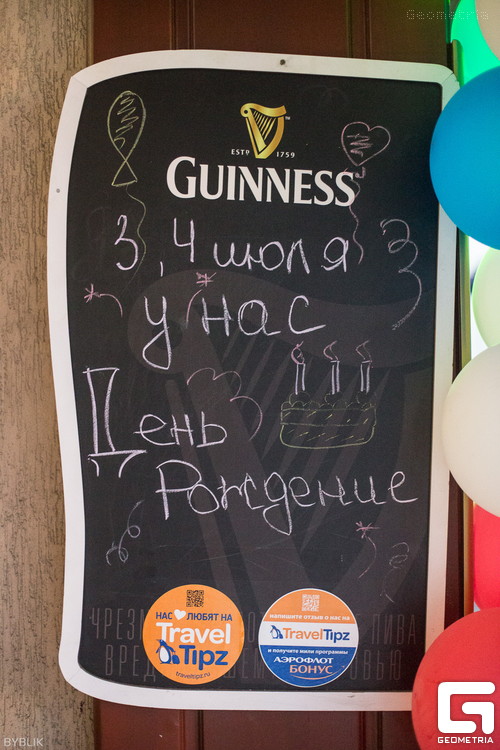 Geometria
ESTD 1759
GUINNESS
3, 4 июля
у нас
День
Рождение
НАС ЛЮБЯТ НА
Travel
Tipz
traveltipz.ru
напишите отзыв о нас на
TravelTipz
и получите мили программы
АЭРОФЛОТ
БОНУС
BYBLIK
GEOMETRIA